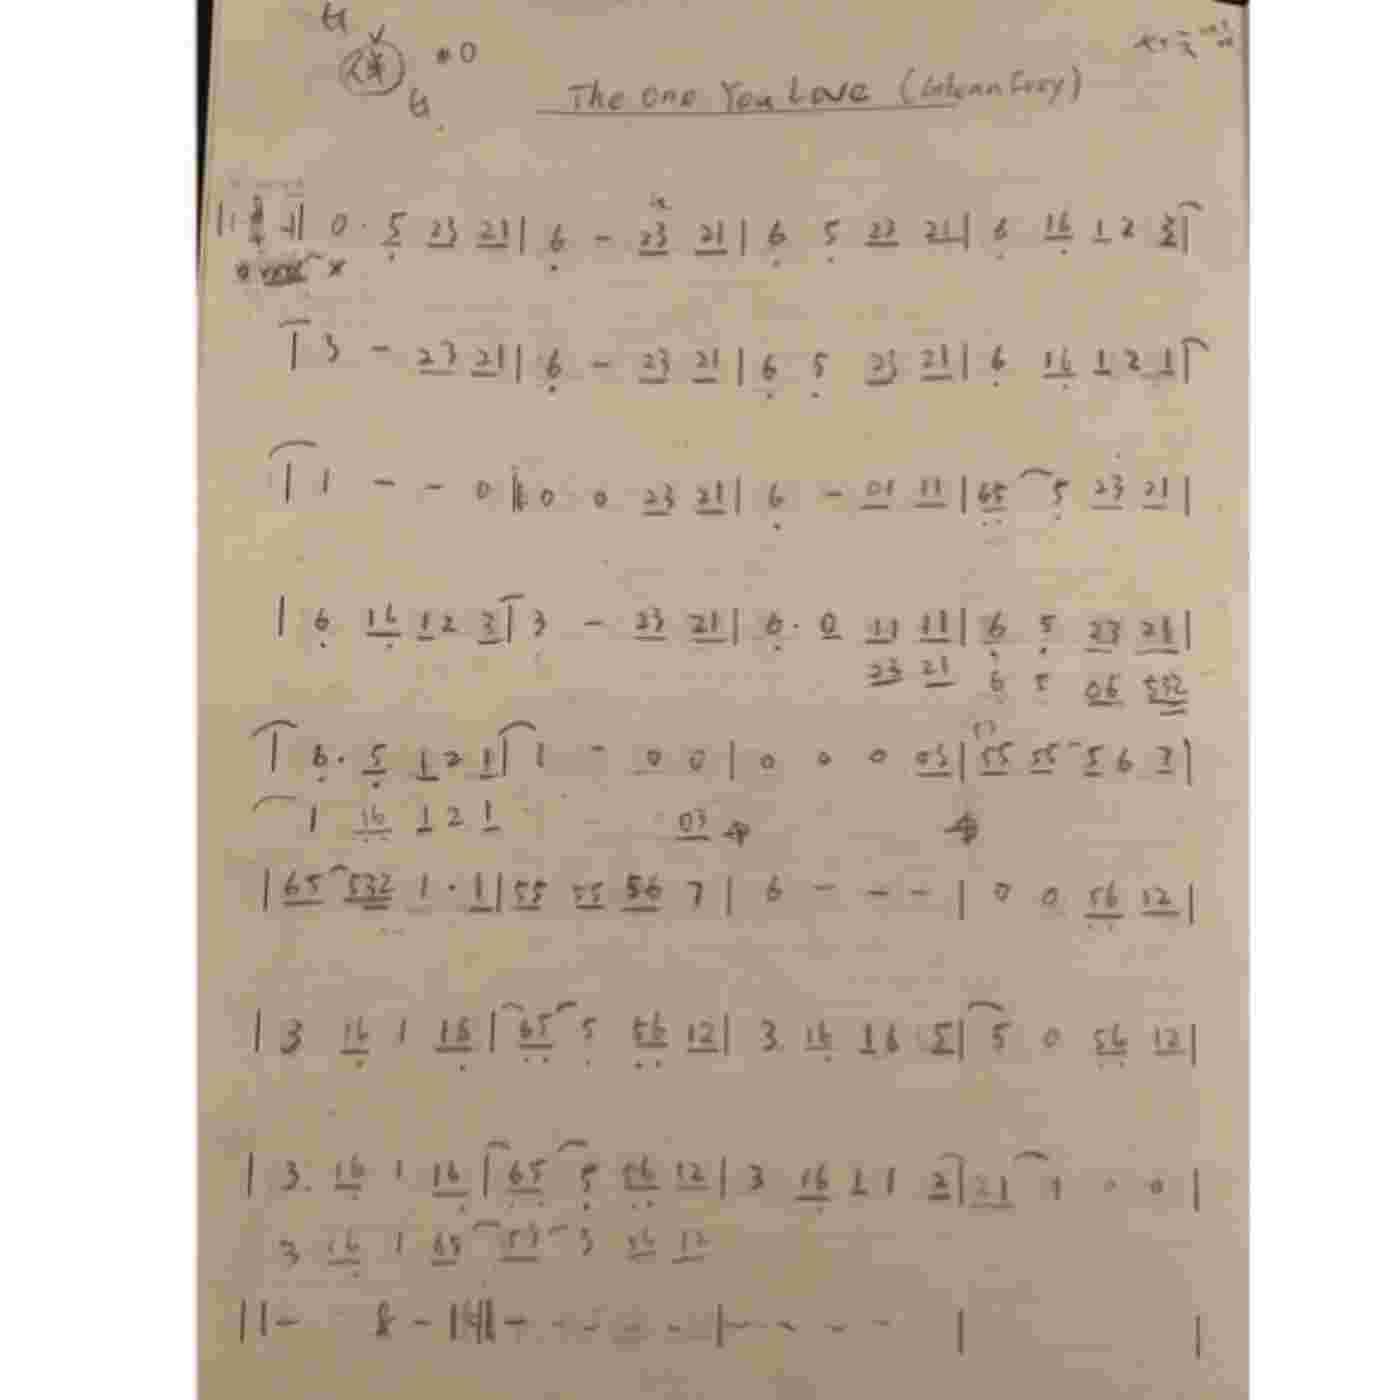 #0
The One You Love (Glenn Frey)
0 · 5 23 21 | 6 - 23 21 | 6 5 23 21 | 6 16 1 2 3 |
| 3 - 23 21 | 6 - 23 21 | 6 5 23 21 | 6 16 1 2 1 |
| 1 - - 0 | 0 0 23 21 | 6 - 01 11 | 65 5 23 21 |
| 6 16 1 2 3 | 3 - 23 21 | 6 · 0 11 11 | 6 5 23 21 |
23 21 6 5 06 532
| 6 · 5 1 2 1 | 1 - 0 0 | 0 0 0 03 | 55 55 5 6 7 |
1 16 1 2 1 03
| 65 532 1 · 1 | 55 55 56 7 | 6 - - - | 0 0 56 12 |
| 3 16 1 16 | 65 5 56 12 | 3 16 1 6 5 | 5 0 56 12 |
| 3 16 1 16 | 65 5 56 12 | 3 16 1 1 2 | 21 1 0 0 |
3 16 1 65 53 3 56 12